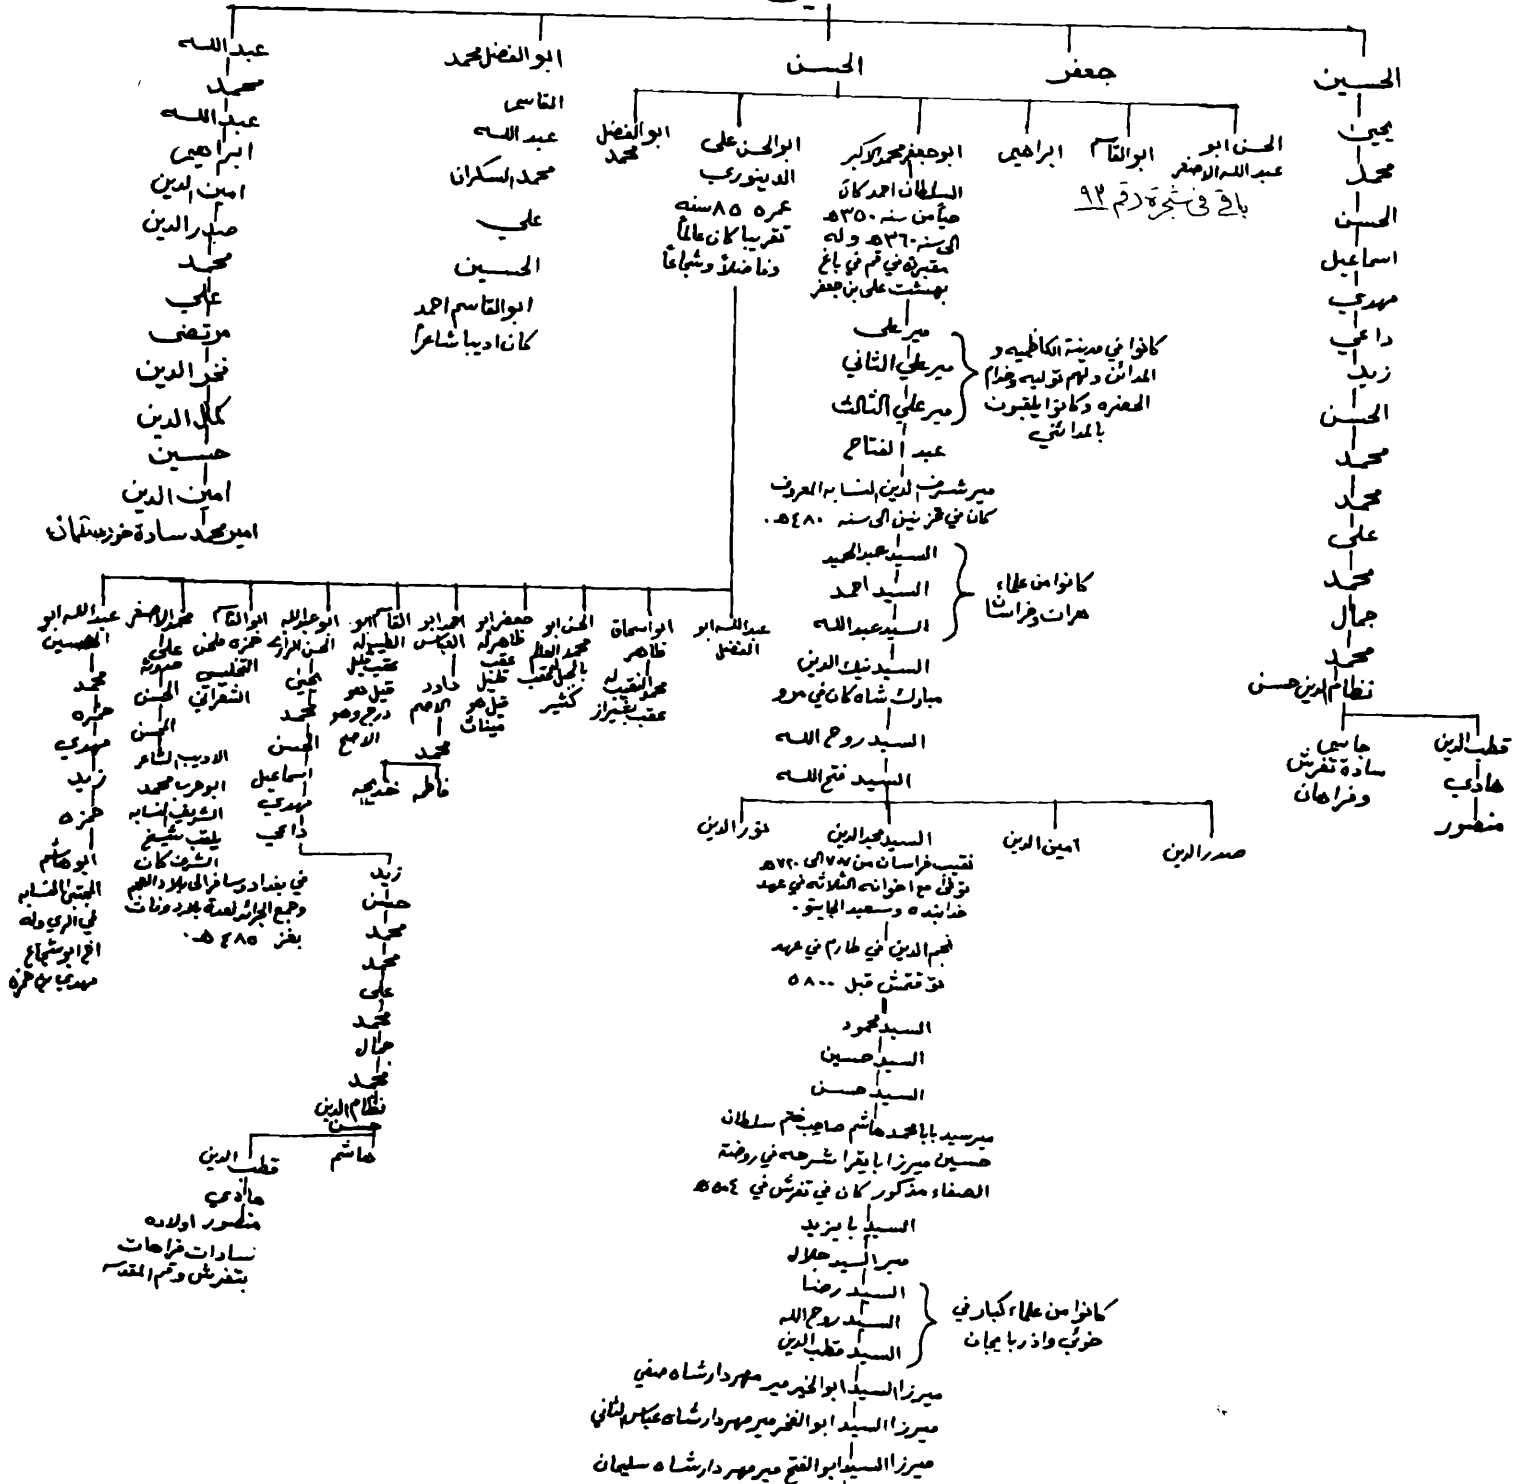 الحسين
يحيى
محمد
الحسن
اسماعيل
مهدي
داعي
زيد
الحسن
محمد
محمد
علي
محمد
جمال
محمد
نظام الدين حسن
قطب الدين
هادي
منصور
جاسي
سادة تفرش
وفراهان
جعفر
الحسن
الحسن ابو
عبد الله الاصغر
باقي في شجرة رقم ٩٣
ابو القاسم
ابراهيم
ابو جعفر محمد الاكبر
السلطان احمد كان
حياً من سنه ٣٥٠ه
الى سنه ٣٦٠ه وله
مقبرة في قم في باغ
بهشت علي بن جعفر
مير علي
مير علي الثاني
مير علي الثالث
كانوا في مدينة الكاظميه و
المدائن ولهم توليه وخدام
الحضره وكانوا يلقبون
بالمدائني
عبد الفتاح
مير شرف الدين النسابه المعروف
كان في قزنين الى سنه ٤٨٠ه.
السيد عبد المجيد
السيد احمد
السيد عبد الله
كانوا من علماء
هرات وخراسان
السيد نيك الدين
مبارك شاه كان في مرو
السيد روح الله
السيد فتح الله
صدر الدين
امين الدين
السيد مجد الدين
نور الدين
نقيب خراسان من ٧٧ الى ٧٢٠ه
توفي مع اخوانه الثلاثه في عهد
خدابنده وسعيد الجايتو.
نجم الدين في طارم في عهد
توقتمش قبل ٨٠٠ه
السيد محمود
السيد حسين
السيد حسن
مير سيد بابا محمد هاشم صاحب ختم سلطان
حسين ميرزا بايقرا شرحه في روضة
الصفاء مذكور كان في تفرش في ٥٠٤ه
السيد بايزيد
مير السيد جلال
السيد رضا
السيد روح الله
السيد قطب الدين
كانوا من علماء كبار في
خوئي واذربايجان
ميرزا السيد ابو الخير مير مهردار شاه صفي
ميرزا السيد ابو الفخر مير مهردار شاه عباس الثاني
ميرزا السيد ابو الفتح مير مهردار شاه سليمان
ابو الحسن علي
الدينوري
عمره ٨٥ سنه
تقريبا كان عالماً
وفاضلاً وشجاعاً
ابو الفضل
محمد
عبد الله ابو
الفضل
ابو اسحاق
طاهر
محمد النقيب له
عقب بشيراز
الحسن ابو
محمد العالم
بالجبل العقب
كثير
جعفر ابو
طاهر له
عقب
قليل
قيل هو
مينات
احمد ابو
العباس
داود
الاصم
محمد
فاطمه
خديجه
القاسم ابو
الطيب له
عقب قليل
قيل هو
درج وهو
الاصح
ابو عبد الله
الحسن الرازي
يحيى
محمد
الحسن
اسماعيل
مهدي
داعي
زيد
حسن
محمد
محمد
علي
محمد
جمال
محمد
نظام الدين
حسن
هاشم
قطب الدين
هادي
منصور اولاده
سادات فراهات
بتفرش وقم المقدسه
ابو القاسم
حمزه
التفليسي
الشعراني
محمد الاصغر
علي
حمزة
الحسن
الحسن
الاديب الشاعر
ابو حرب محمد
الشريف النسابه
يلقب بشيخ
الشرف كان
في بغداد وسافر الى بلاد العجم
وجمع الجرائد لعدة بلاد ومات
بغز ٤٨٥ه.
عبد الله ابو
الحسين
محمد
حمزه
مهدي
زيد
حمزه
ابو هاشم
المجتبى النسابه
في الري وله
اخ ابو شجاع
مهدي بن حمزه
ابو الفضل محمد
القاسم
عبد الله
محمد السكران
علي
الحسين
ابو القاسم احمد
كان اديبا شاعراً
عبد الله
محمد
عبد الله
ابراهيم
امين الدين
صدر الدين
محمد
علي
مرتضى
فخر الدين
كمال الدين
حسين
امين الدين
امين محمد سادة خوزستان